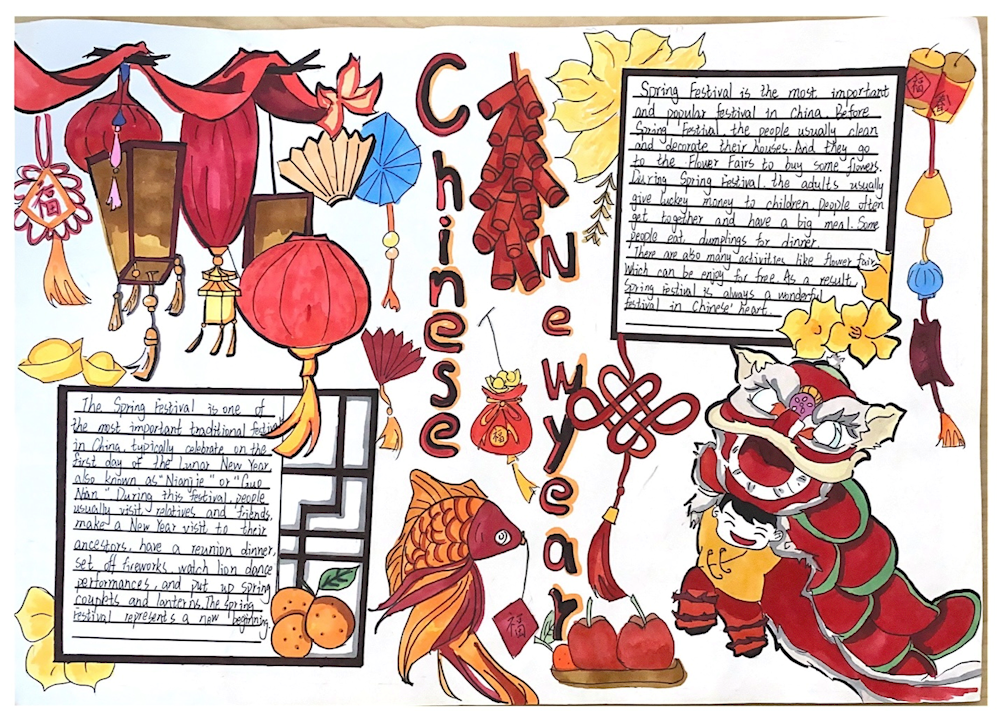 Chinese
New year
Spring Festival is the most important
and popular festival in China. Before
Spring Festival the people usually clean
and decorate their houses. And they go
to the Flower Fairs to buy some flowers.
During Spring Festival. the adults usually
give luckey money to children. people often
get together and have a big meal. Some
people eat dumplings for dinner.
There are also many activities like flower fair,
which can be enjoy for free. As a result,
Spring Festival is always a wonderful
festival in Chinese' heart.
The Spring Festival is one of
the most important traditional festival
in China, typically celebrate on the
first day of the Lunar New Year
also known as "Nianjie" or "Guo
Nian." During this festival, people
usually visit relatives and friends,
make a New Year visit to their
ancestors, have a reunion dinner,
set off fireworks, watch lion dance
performances, and put up spring
couplets and lanterns. The spring
festival represents a new beginning.
福
福
福
福
春